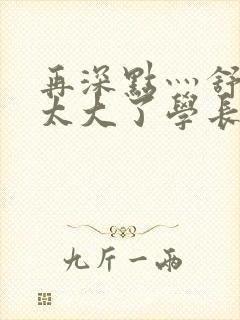 再深點灬舒
太大了學長
九斤一兩